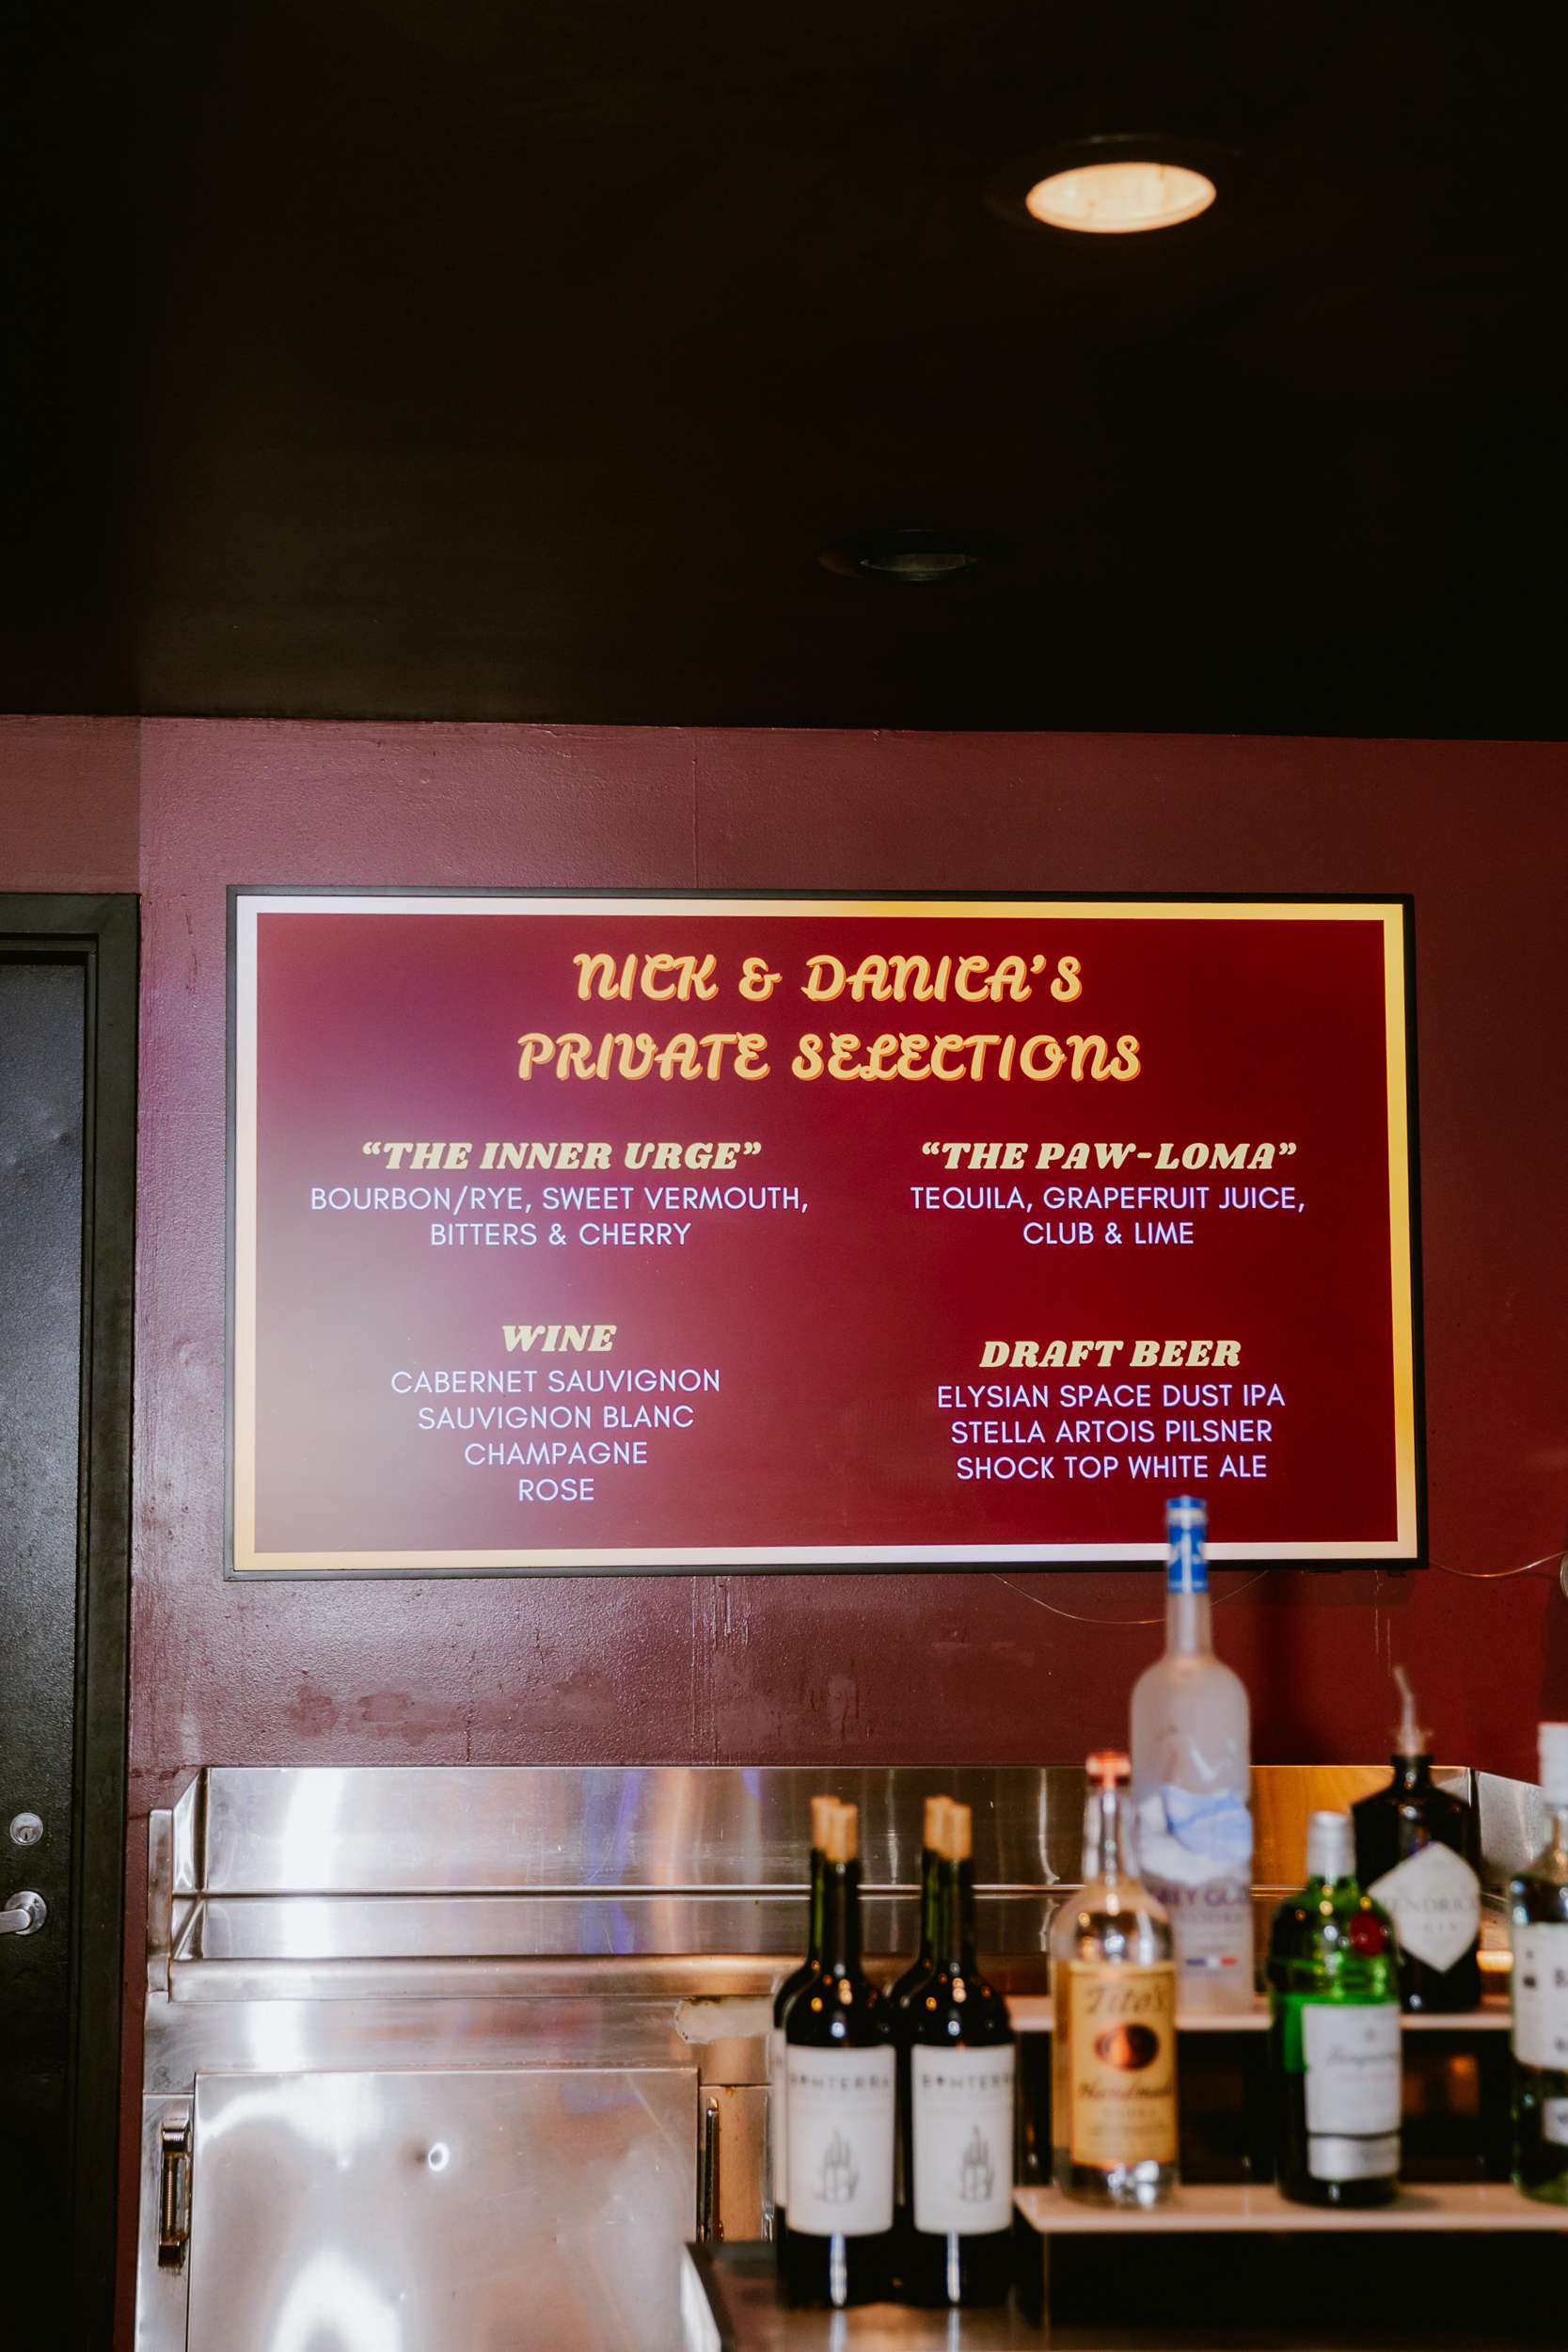 NICK & DANICA'S
PRIVATE SELECTIONS
“THE INNER URGE”
BOURBON/RYE, SWEET VERMOUTH,
BITTERS & CHERRY
“THE PAW-LOMA”
TEQUILA, GRAPEFRUIT JUICE,
CLUB & LIME
WINE
CABERNET SAUVIGNON
SAUVIGNON BLANC
CHAMPAGNE
ROSE
DRAFT BEER
ELYSIAN SPACE DUST IPA
STELLA ARTOIS PILSNER
SHOCK TOP WHITE ALE
BONTERRA
BONTERRA
Tito's
Handmade